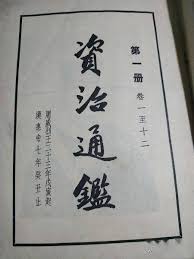 第一冊 卷一至十二
資治通鑑
周威烈王二十三年戊寅起
漢惠帝七年癸丑止